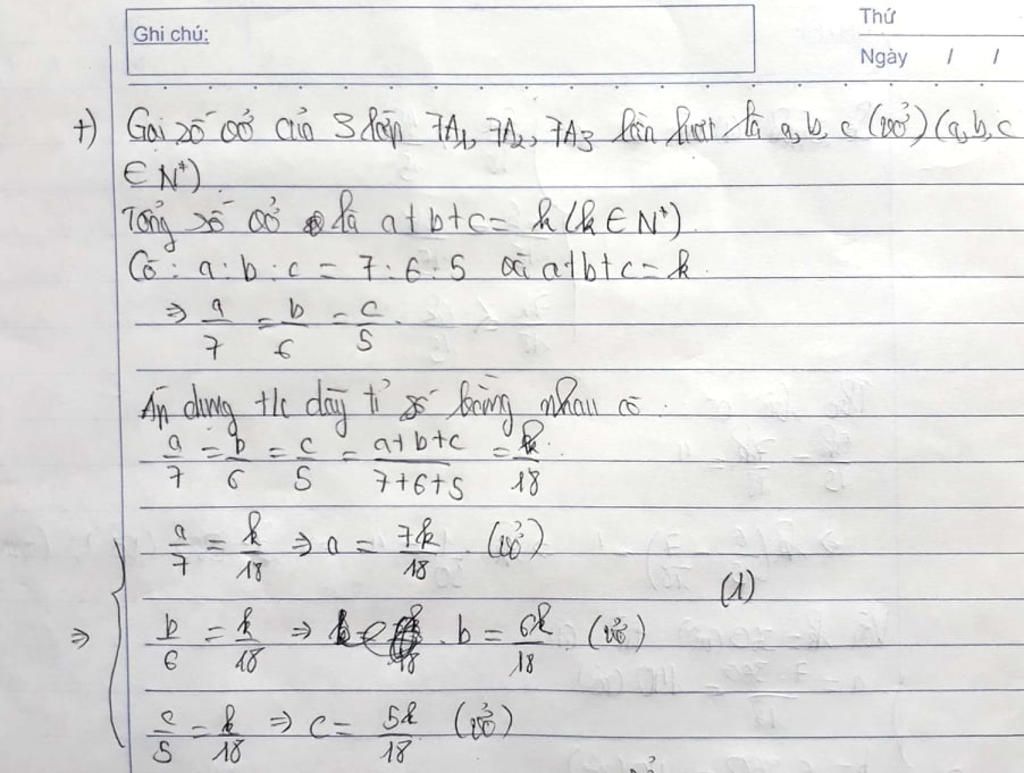 Ghi chú:
Thứ
Ngày / /
+) Gọi số vở của 3 lớp 7A1, 7A2, 7A3 lần lượt là a, b, c (vở) (a, b, c
∈ N*)
Tổng số vở là a+b+c = k (k ∈ N*)
Có: a : b : c = 7 : 6 : 5 và a+b+c = k
⇒ a/7 = b/6 = c/5
Áp dụng t/c dãy tỉ số bằng nhau có:
a/7 = b/6 = c/5 = (a+b+c)/(7+6+5) = k/18
a/7 = k/18 ⇒ a = 7k/18 (vở)
(1)
⇒ b/6 = k/18 ⇒ b = 6k/18 (vở)
c/5 = k/18 ⇒ c = 5k/18 (vở)